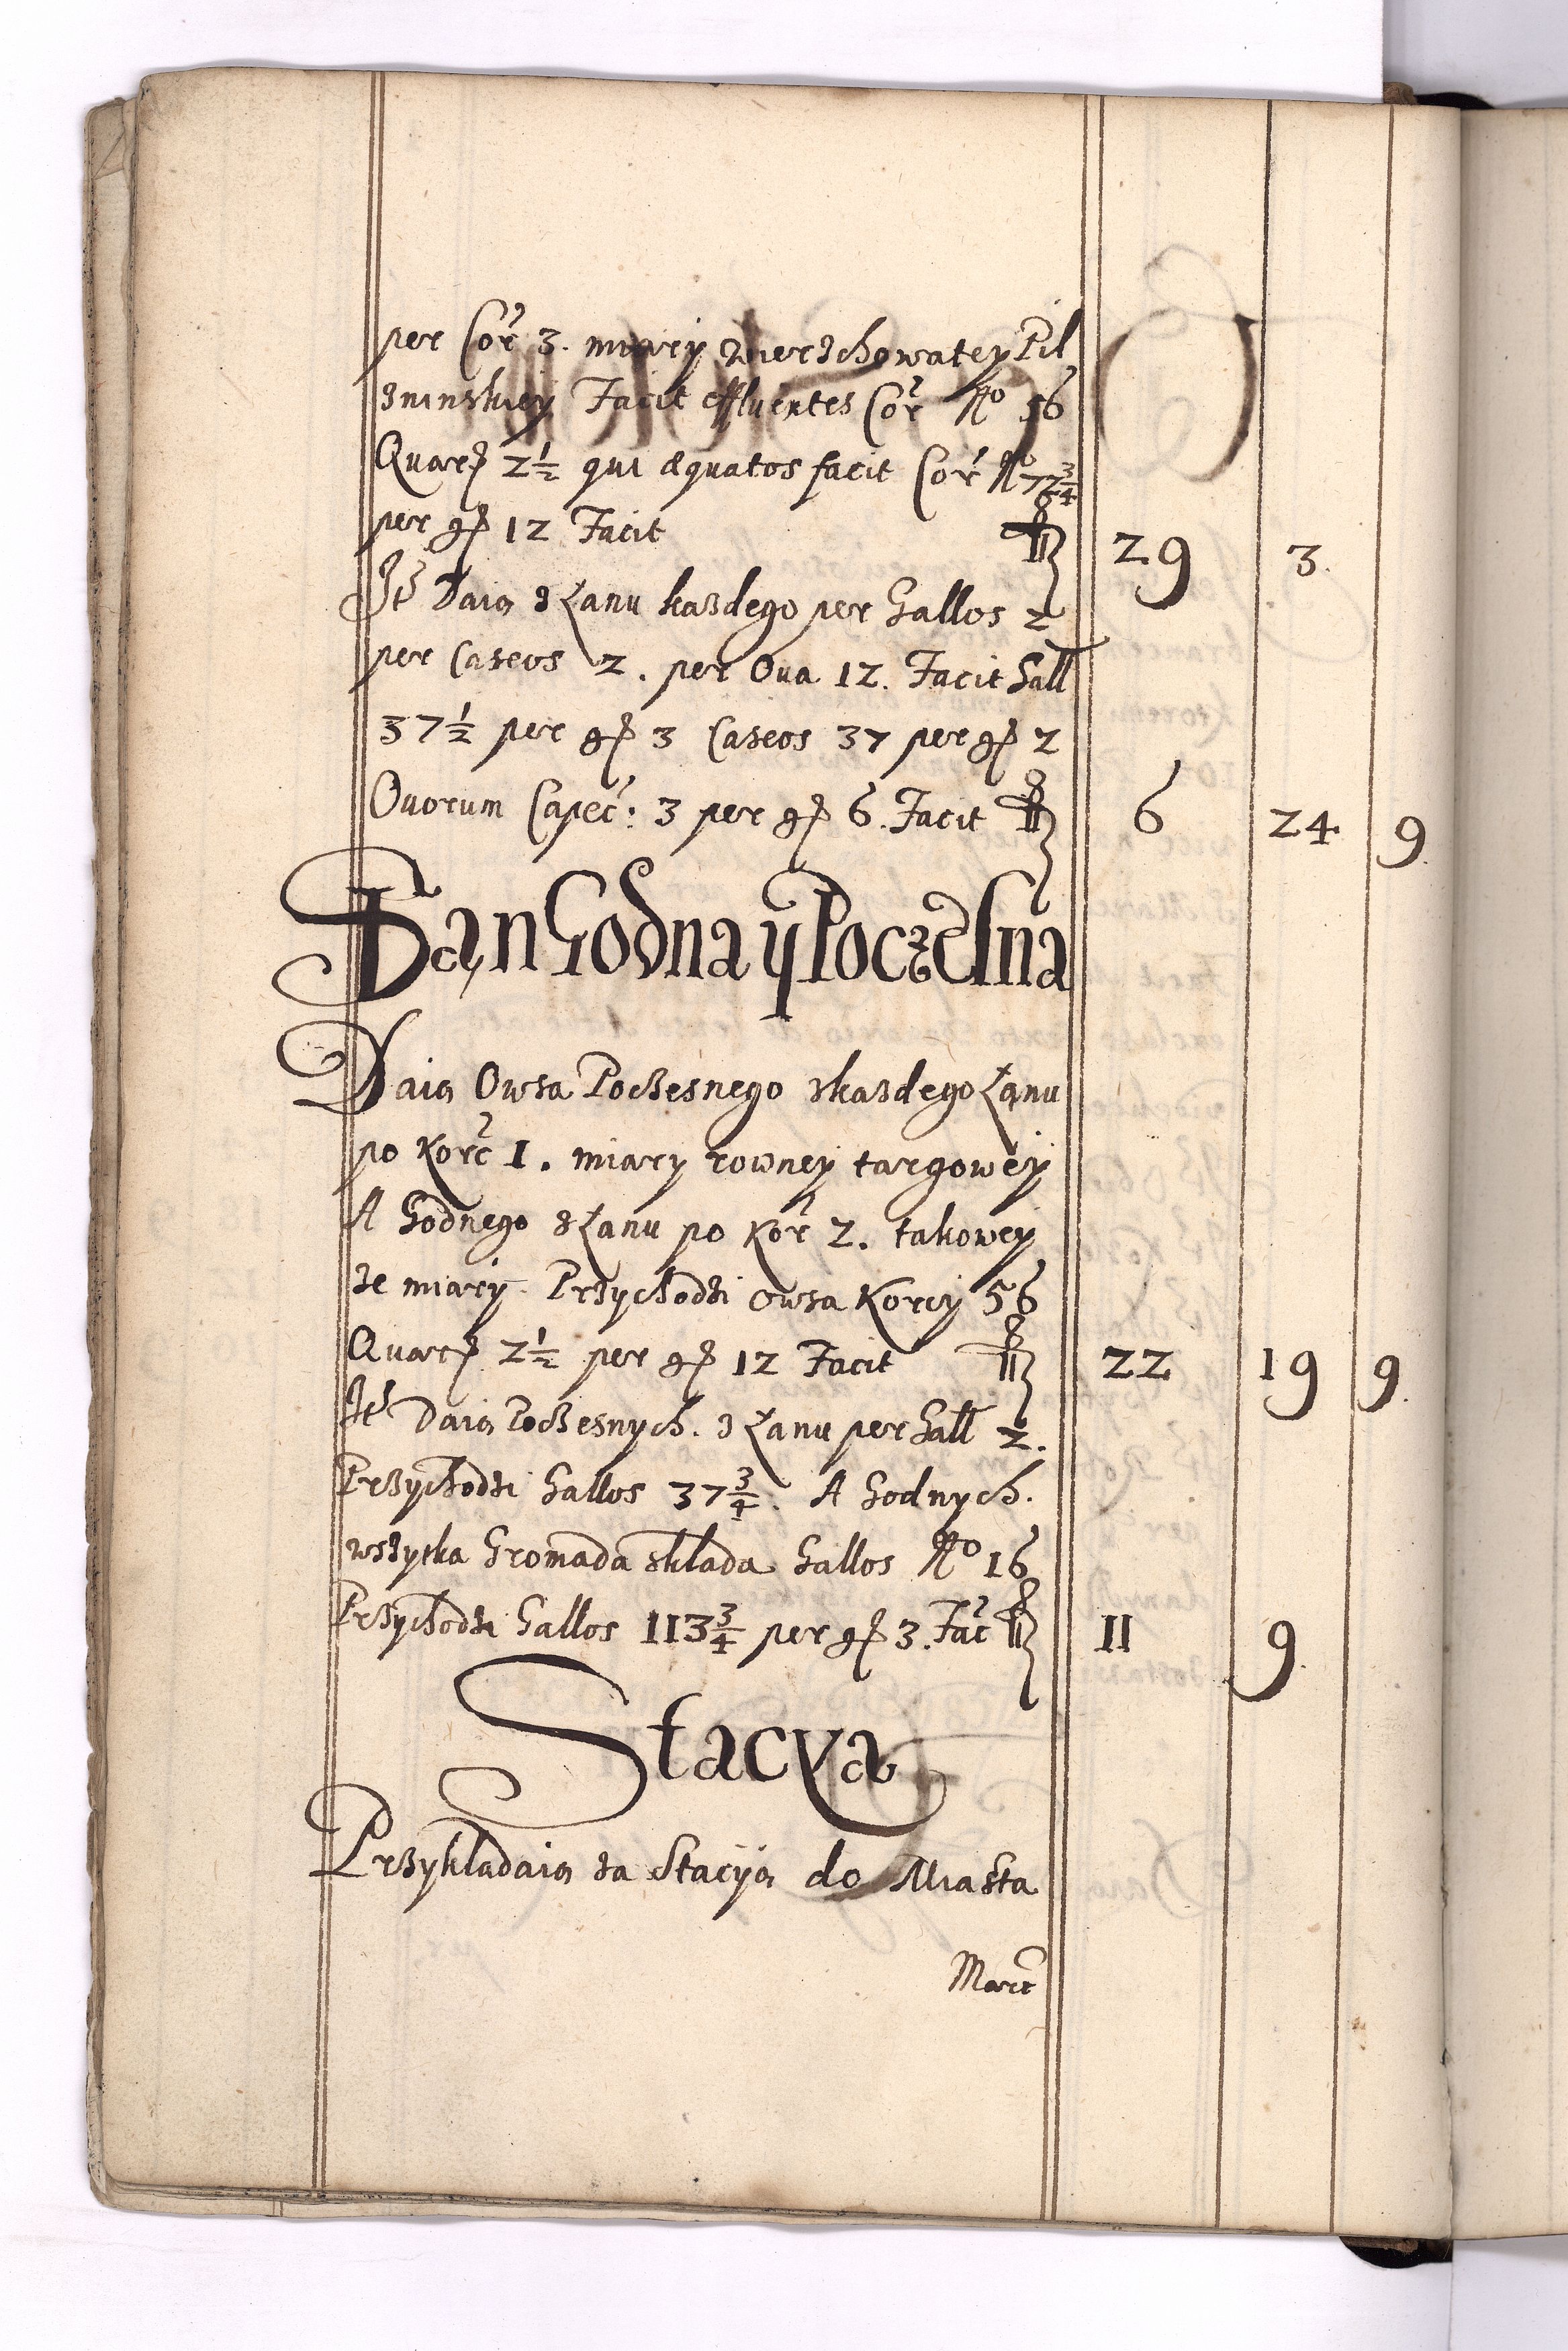 per Cor 3. miary zwierzchowatey Pil
zninskiey Facit effluentes Cor No 56
Quar 2½ qui æquatos facit Cor No 72¾
per gr 12 Facit 29 3.
Ite Daią z Łanu kazdego per Gallos 2
per Caseos 2. per Oua 12. Facit Gall
37½ per gr 3 Caseos 37 per gr 2
Ouorum Capec: 3 per gr 6. Facit 6 24 9.
Dań Godna y Poczesna
Daią Owsa Poczesnego zkazdego Łanu
po Korc 1. miary rowney targowey
A Godnego z Łanu po Kor 2. takowey
ze miary. Przychodzi owsa Korcy 56
Quar 2½ per gr 12 Facit 22 19 9.
Ite Daią Poczesnych. z Łanu per Gall 2.
Przychodzi Gallos 37¾. A Godnych.
wszytka Gromada sklada Gallos No 16
Przychodzi Gallos 113¾ per gr 3. Fac 11 9.
Stacya
Przykladaią za Stacyą do Miasta
Marc